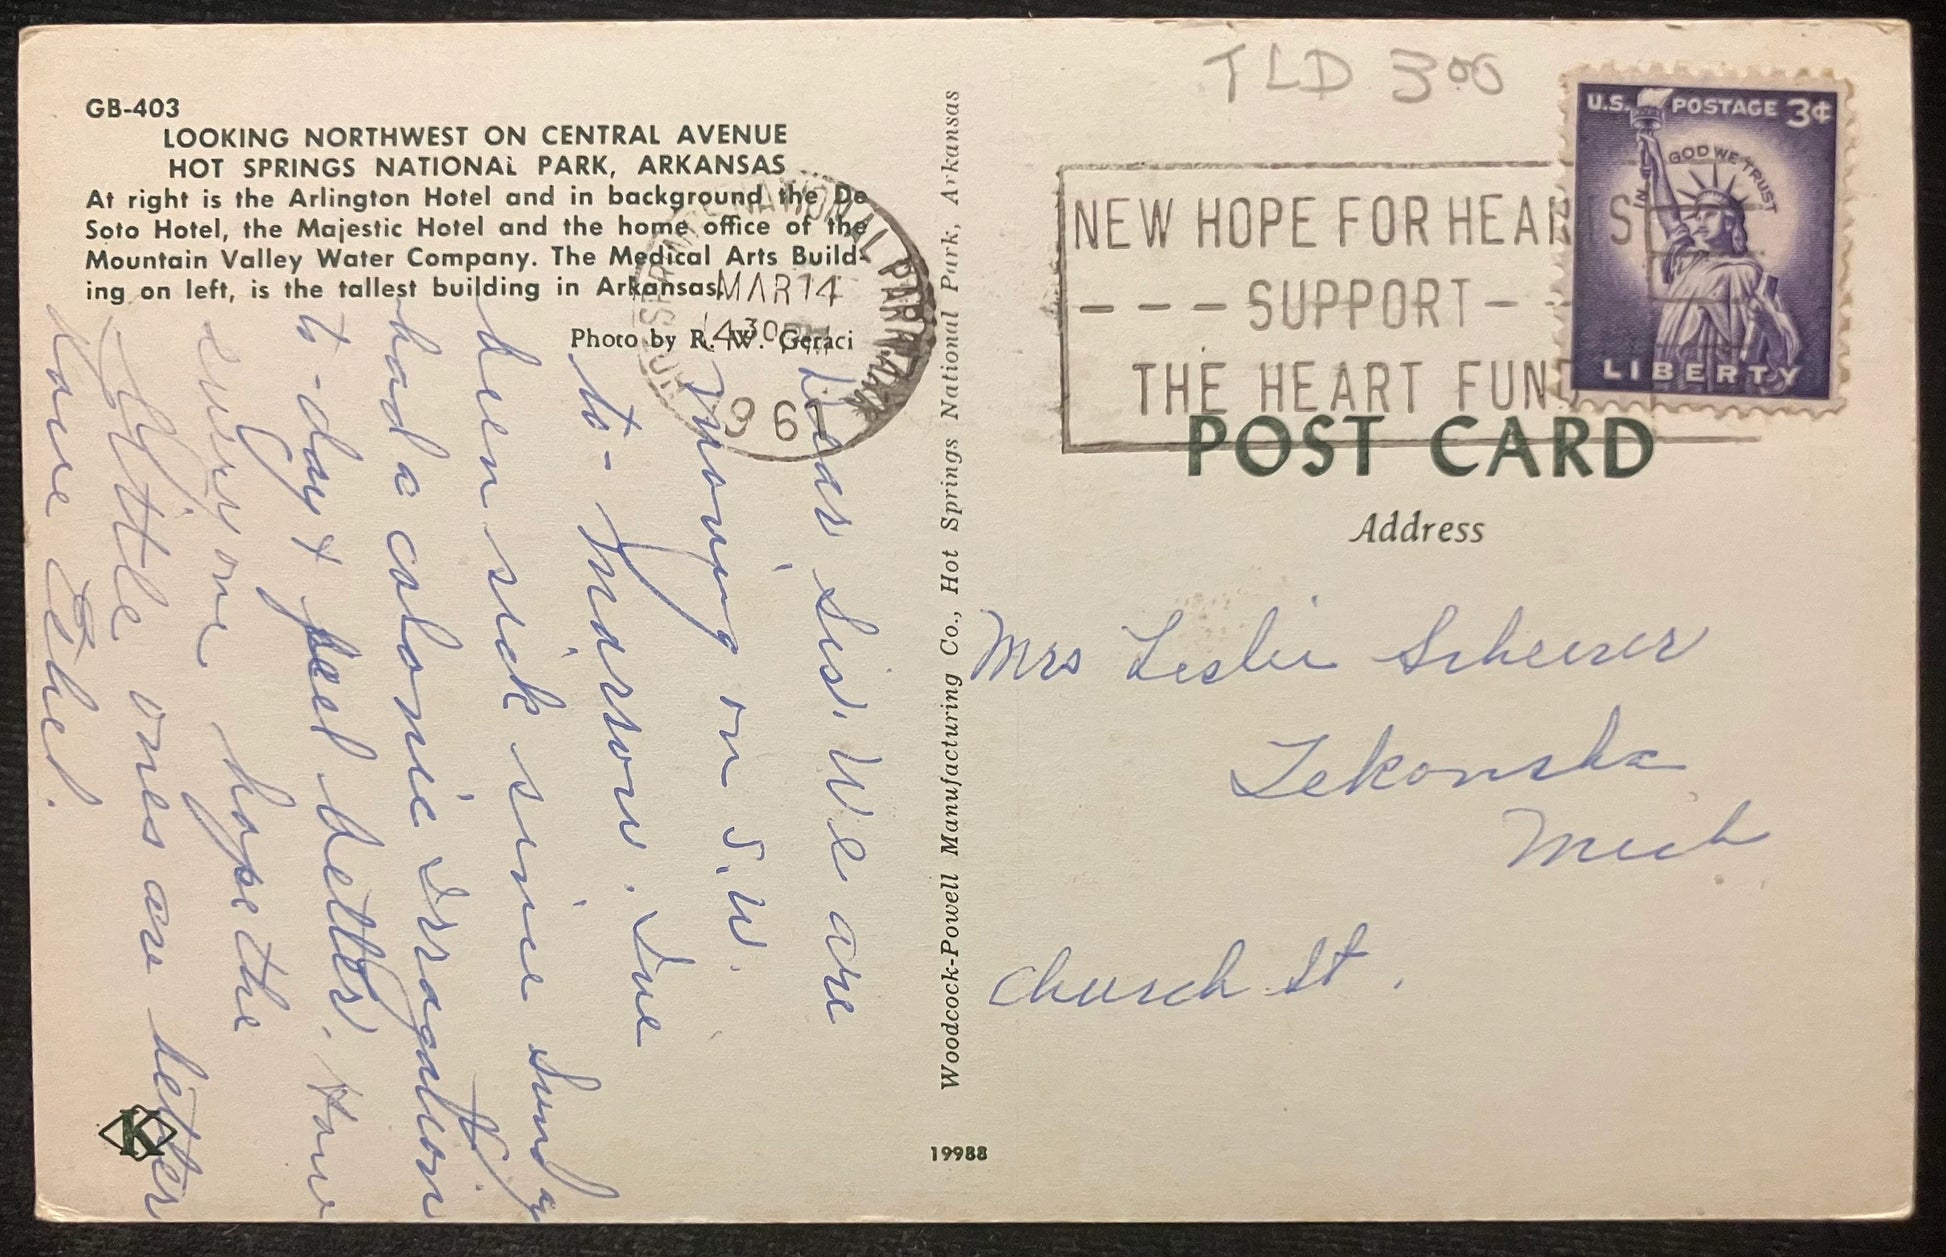 GB-403
LOOKING NORTHWEST ON CENTRAL AVENUE
HOT SPRINGS NATIONAL PARK, ARKANSAS
At right is the Arlington Hotel and in background the De
Soto Hotel, the Majestic Hotel and the home office of the
Mountain Valley Water Company. The Medical Arts Build-
ing on left, is the tallest building in Arkansas.
Photo by R. W. Geraci
MAR 14
430 PM
1961
Dear Sis, We are
moving on S.W.
to-morrow. Ive
been sick since Sunday
had a colonic irragation
to-day & feel better. How
every one hope the
little ones are better
Love Ethel.
K
Woodcock-Powell Manufacturing Co., Hot Springs National Park, Arkansas
19988
TLD 3.00
NEW HOPE FOR HEARTS
--- SUPPORT -
THE HEART FUND
U.S. POSTAGE 3¢
IN GOD WE TRUST
LIBERTY
POST CARD
Address
Mrs Leslie Scheerer
Tekonsha
Mich
Church St.